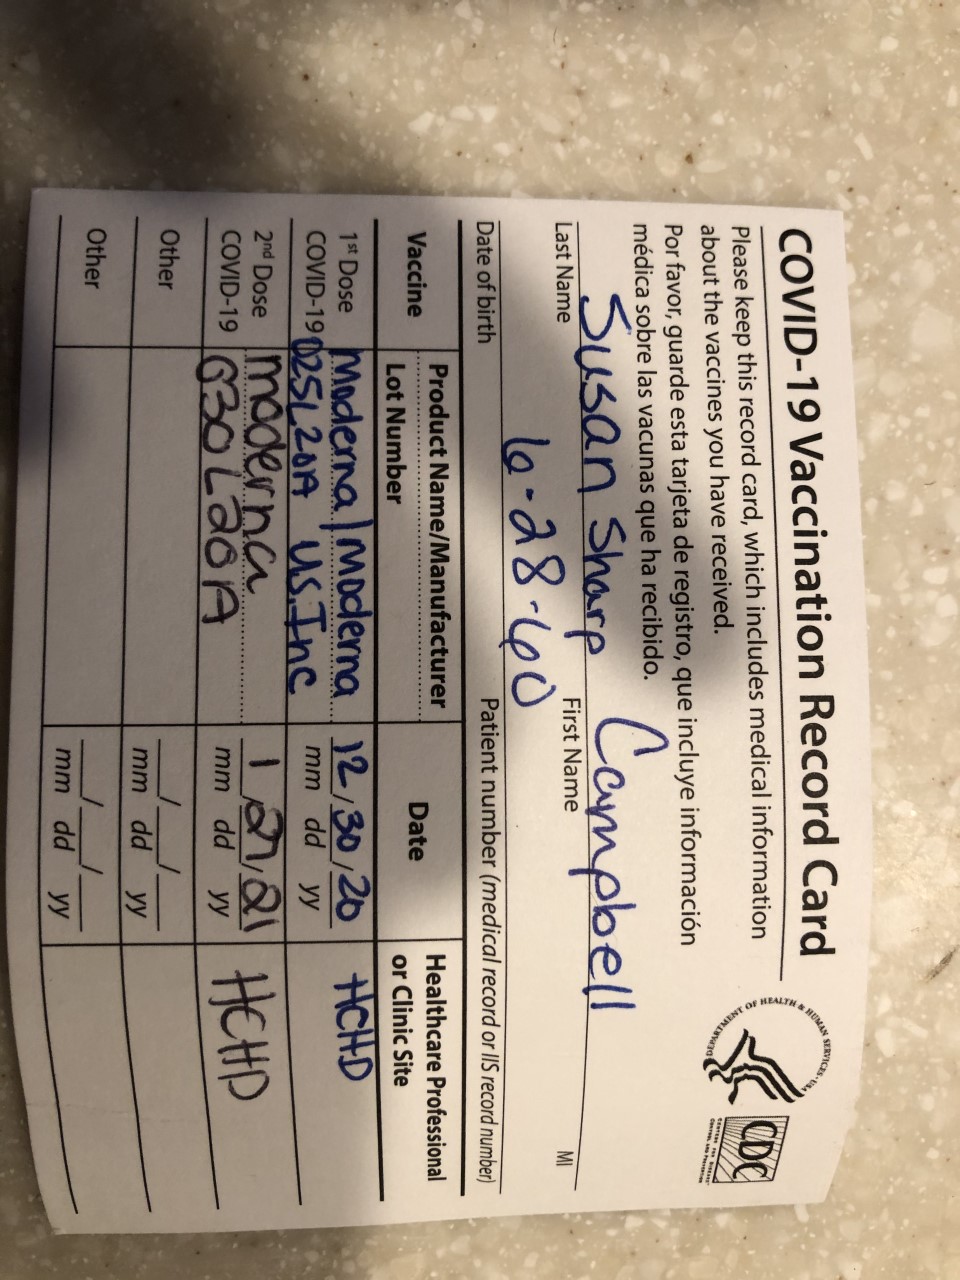 COVID-19 Vaccination Record Card
Please keep this record card, which includes medical information
about the vaccines you have received.
Por favor, guarde esta tarjeta de registro, que incluye información
médica sobre las vacunas que ha recibido.
DEPARTMENT OF HEALTH & HUMAN SERVICES · USA
CDC
CENTERS FOR DISEASE
CONTROL AND PREVENTION
Susan Sharp Campbell
Last Name First Name MI
6-28-60
Date of birth Patient number (medical record or IIS record number)
Vaccine Product Name/Manufacturer Date Healthcare Professional
Lot Number or Clinic Site
1st Dose Moderna/Moderna 12/30/20 HCHD
COVID-19 025L20A US.Inc mm dd yy
2nd Dose moderna 1/27/21 HCHD
COVID-19 030L20A mm dd yy
Other __/__/__
mm dd yy
Other __/__/__
mm dd yy